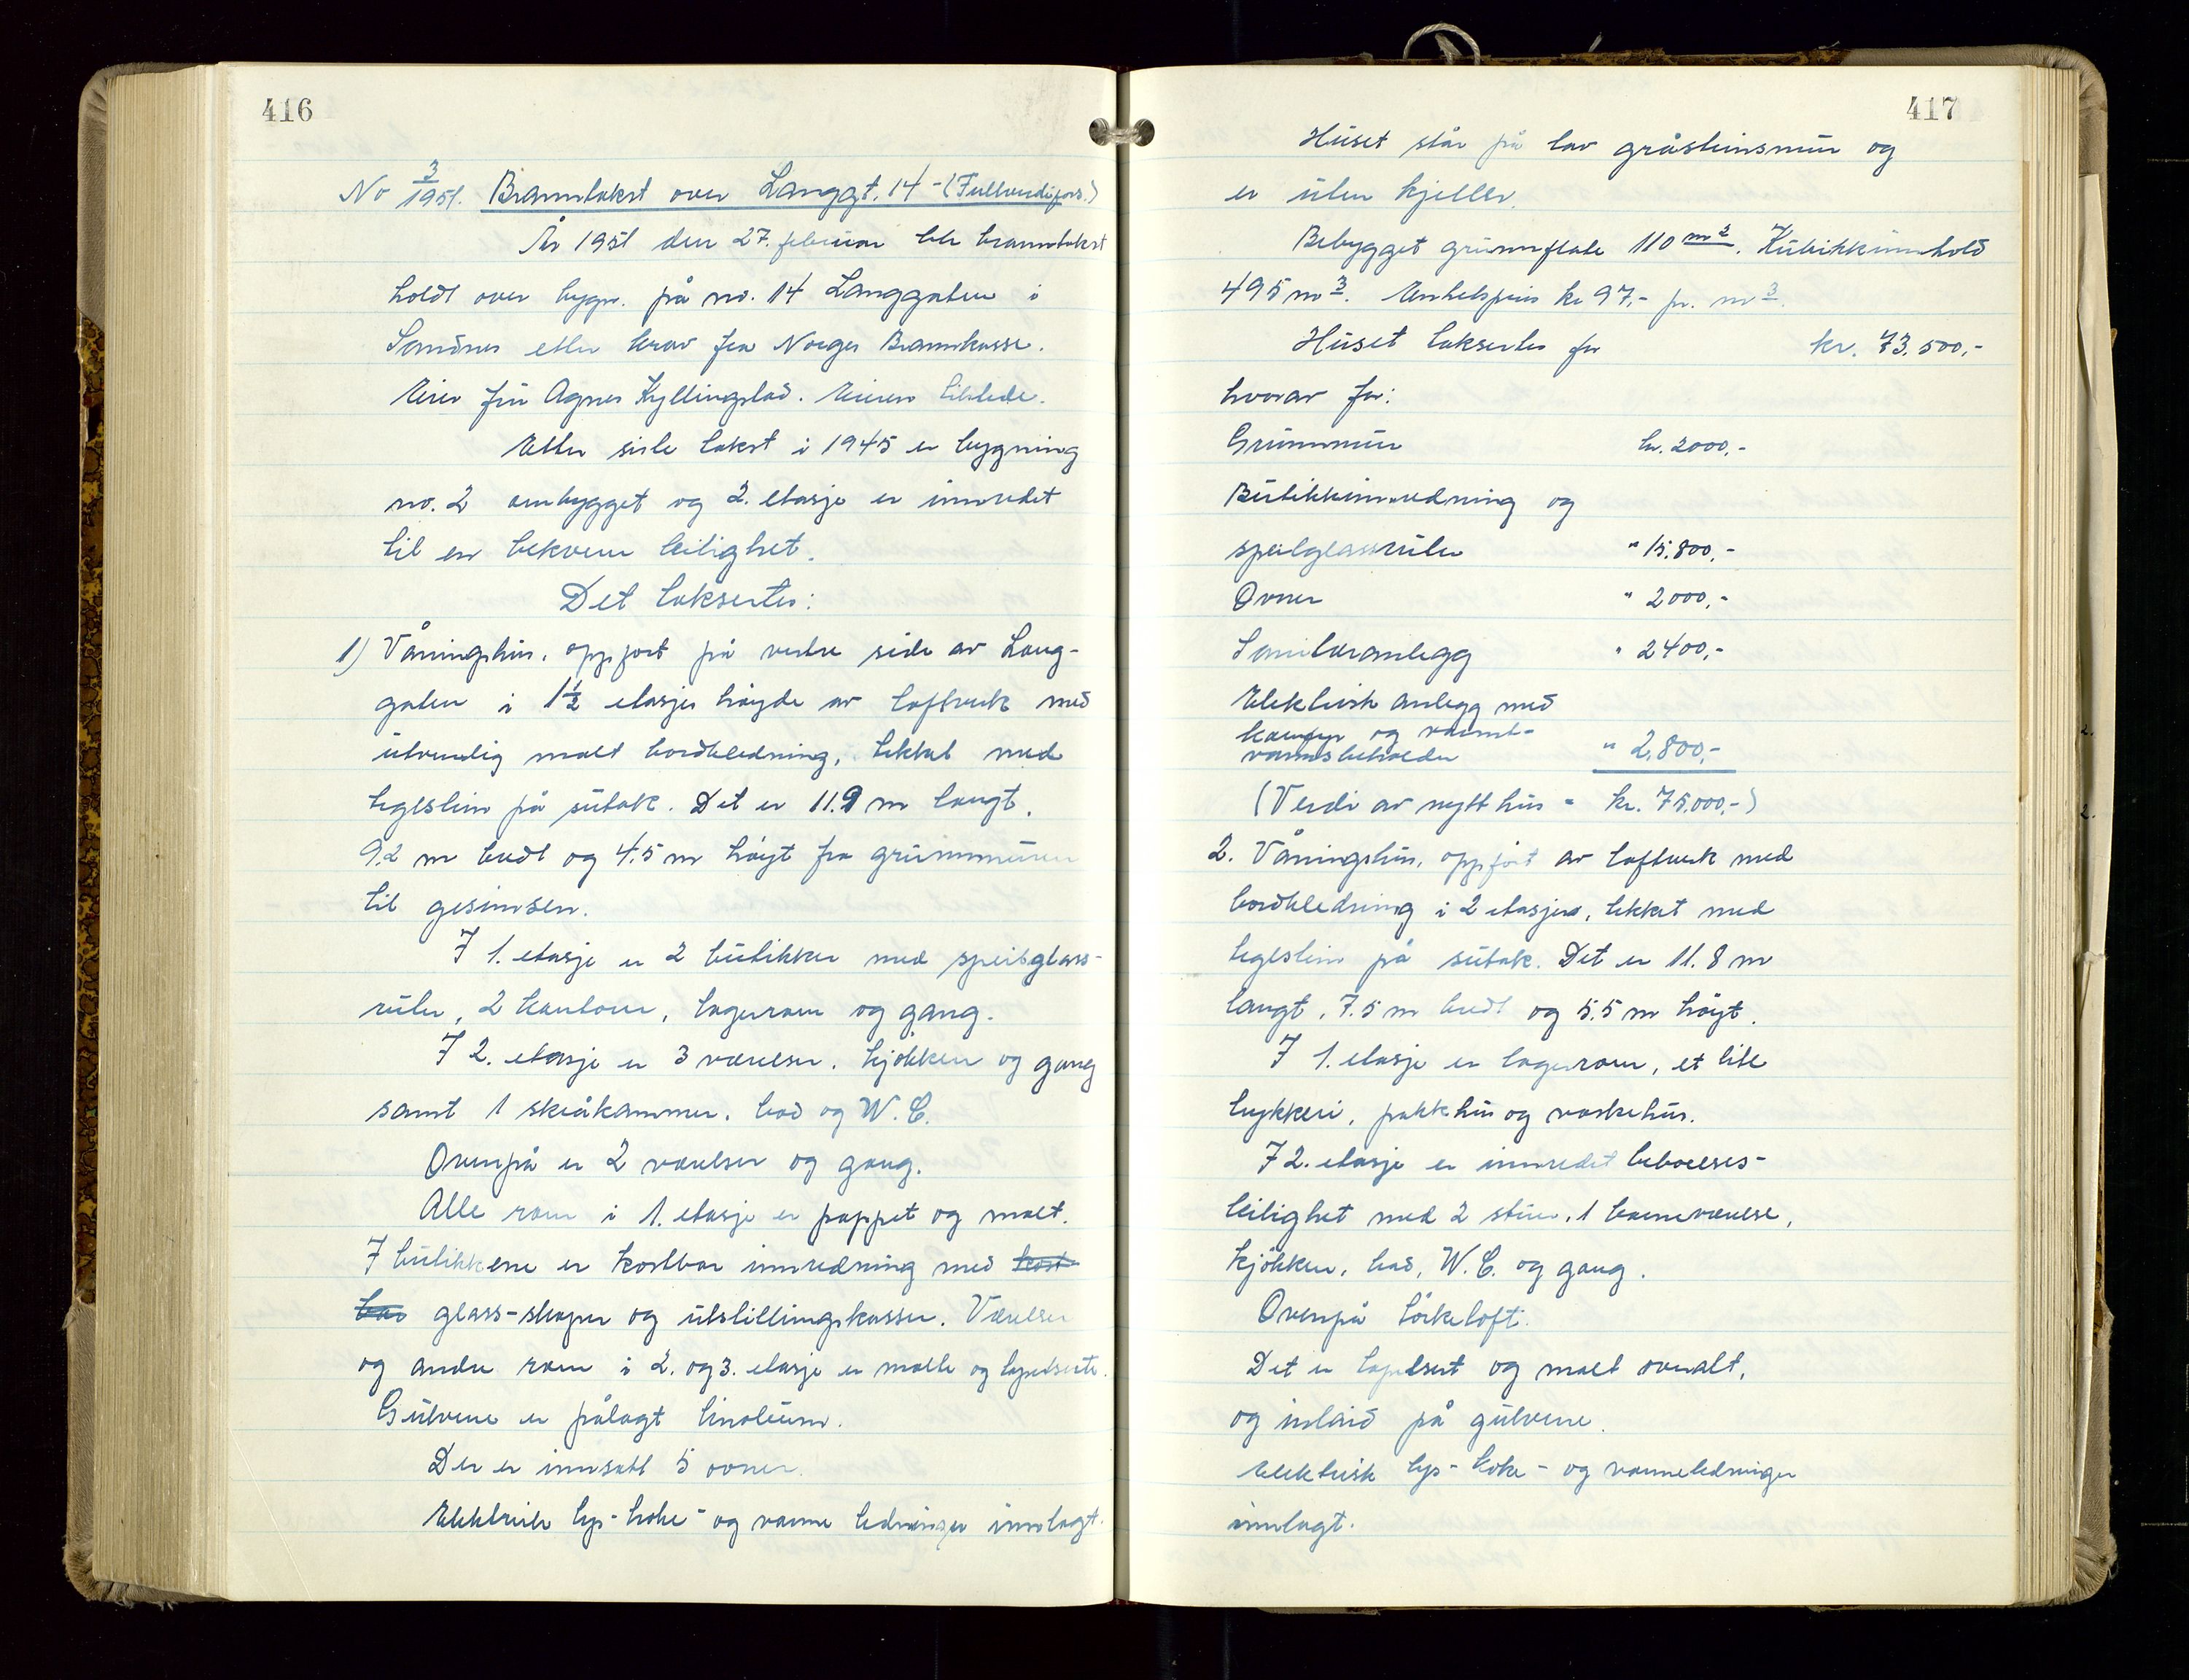 416
No 3/1951. Branntakst over Langgt. 14 - (Fullverdifors.)
År 1951 den 27. februar ble branntakst
holdt over bygn. på no. 14 Langgaten i
Sandnes etter krav fra Norges Brannkasse.
Eier fru Agnes Kyllingstad. Eieren tilstede.
Etter siste takst i 1945 er bygning
no. 2 ombygget og 2. etasje er innredet
til en bekvem leilighet.
Det takseres:
1) Våningshus, oppført på vestre side av Lang-
gaten i 1½ etasjes høyde av toftverk med
utvendig malt bordkledning, tekket med
teglstein på sutak. Det er 11.9 m langt,
9.2 m bredt og 4.5 m høyt fra grunnmuren
til gesimsen.
I 1. etasje er 2 butikker med speilglass-
ruter, 2 kontorer, lagerrom og gang.
I 2. etasje er 3 værelser, kjøkken og gang
samt 1 skråkammer, bad og W.C.
Ovenpå er 2 værelser og gang.
Alle rom i 1. etasje er pappet og malt.
I butikkene er kostbar innredning med kost-
bar glass-skaper og utstillingskasser. Værelser
og andre rom i 2. og 3. etasje er malte og tapetserte.
Gulvene er pålagt linoleum.
Der er innsatt 5 ovner.
Elektriske lys- koke- og varme ledninger innlagt.
417
Huset står på lav gråsteinsmur og
er uten kjeller.
Bebygget grunnflate 110 m2. Kubikkinnhold
495 m3. Enhetspris kr 97,- pr. m3.
Huset takseres for kr. 73.500,-
hvorav for:
Grunnmur kr. 2000,-
Butikkinnredning og
speilglassruter " 15.800,-
Ovner " 2000,-
Sanitæranlegg " 2400,-
Elektrisk anlegg med
komfyr og varmt-
vannsbeholder " 2.800,-
(Verdi av nytt hus = kr. 75.000,-)
2. Våningshus, oppført av toftverk med
bordkledning i 2 etasjer, tekket med
teglstein på sutak. Det er 11.8 m
langt, 7.5 m bredt og 5.5 m høyt.
I 1. etasje er lagerrom, et lite
trykkeri, pakkhus og vaskehus.
I 2. etasje er innredet beboelses-
leilighet med 2 stuer, 1 barneværelse,
kjøkken, bad, W.C. og gang.
Ovenpå tørkeloft.
Det er tapetsert og malt overalt,
og inlaid på gulvene.
Elektrisk lys- koke- og varmeledninger
innlagt.